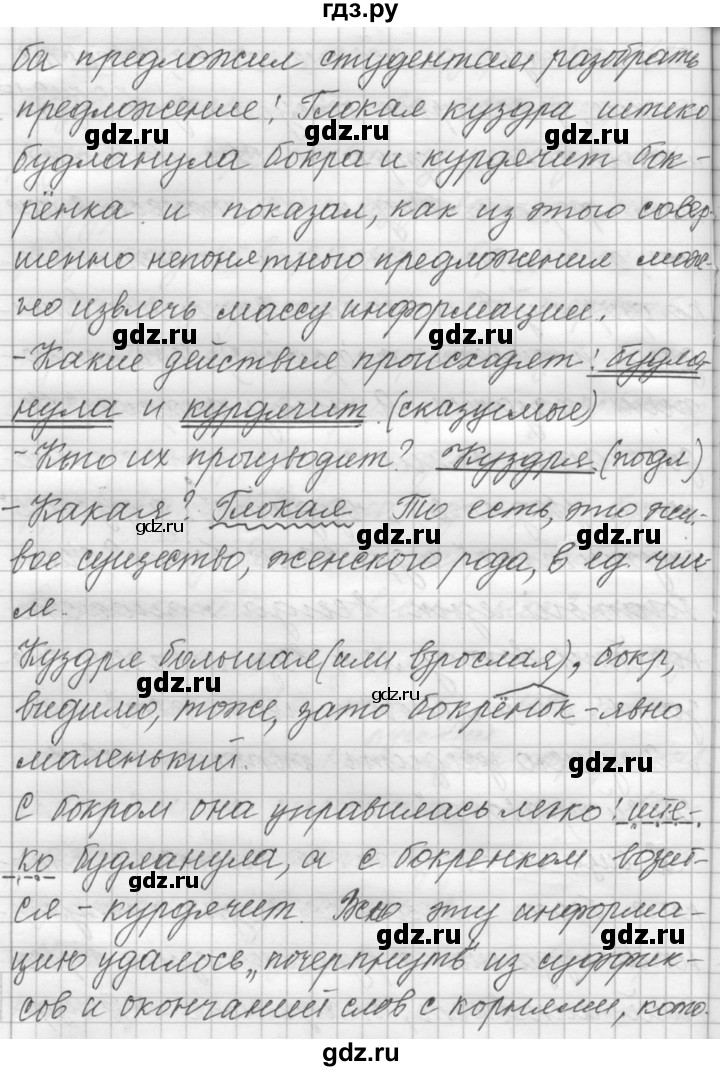 гдз.ру
ба предложил студентам разобрать
предложение: Глокая куздра штеко
gdz.ru gdz.ru gdz.ru
будланула бокра и курдячит бок-
рёнка и показал, как из этого совер-
шенно непонятного предложения мож-
но извлечь массу информации.
gdz.ru gdz.ru
-Какие действия происходят: будла-
нула и курдячит (сказуемые)
-Кто их производит? Куздра (подл)
-Какая? Глокая То есть, это жи-
gdz.ru gdz.ru gdz.ru
вое существо, женского рода, в ед. чис-
ле.
Куздра большая (или взрослая), бокр,
gdz.ru gdz.ru
видимо, тоже, зато бокрёнок - явно
маленький.
gdz.ru
С бокром она управилась легко: ште-
ко будланула, а с бокренком возит-
gdz.ru
ся - курдячит. Всю эту информа-
gdz.ru gdz.ru
цию удалось „почерпнуть" из суффик-
сов и окончаний слов с корнями, кото-
gdz.ru